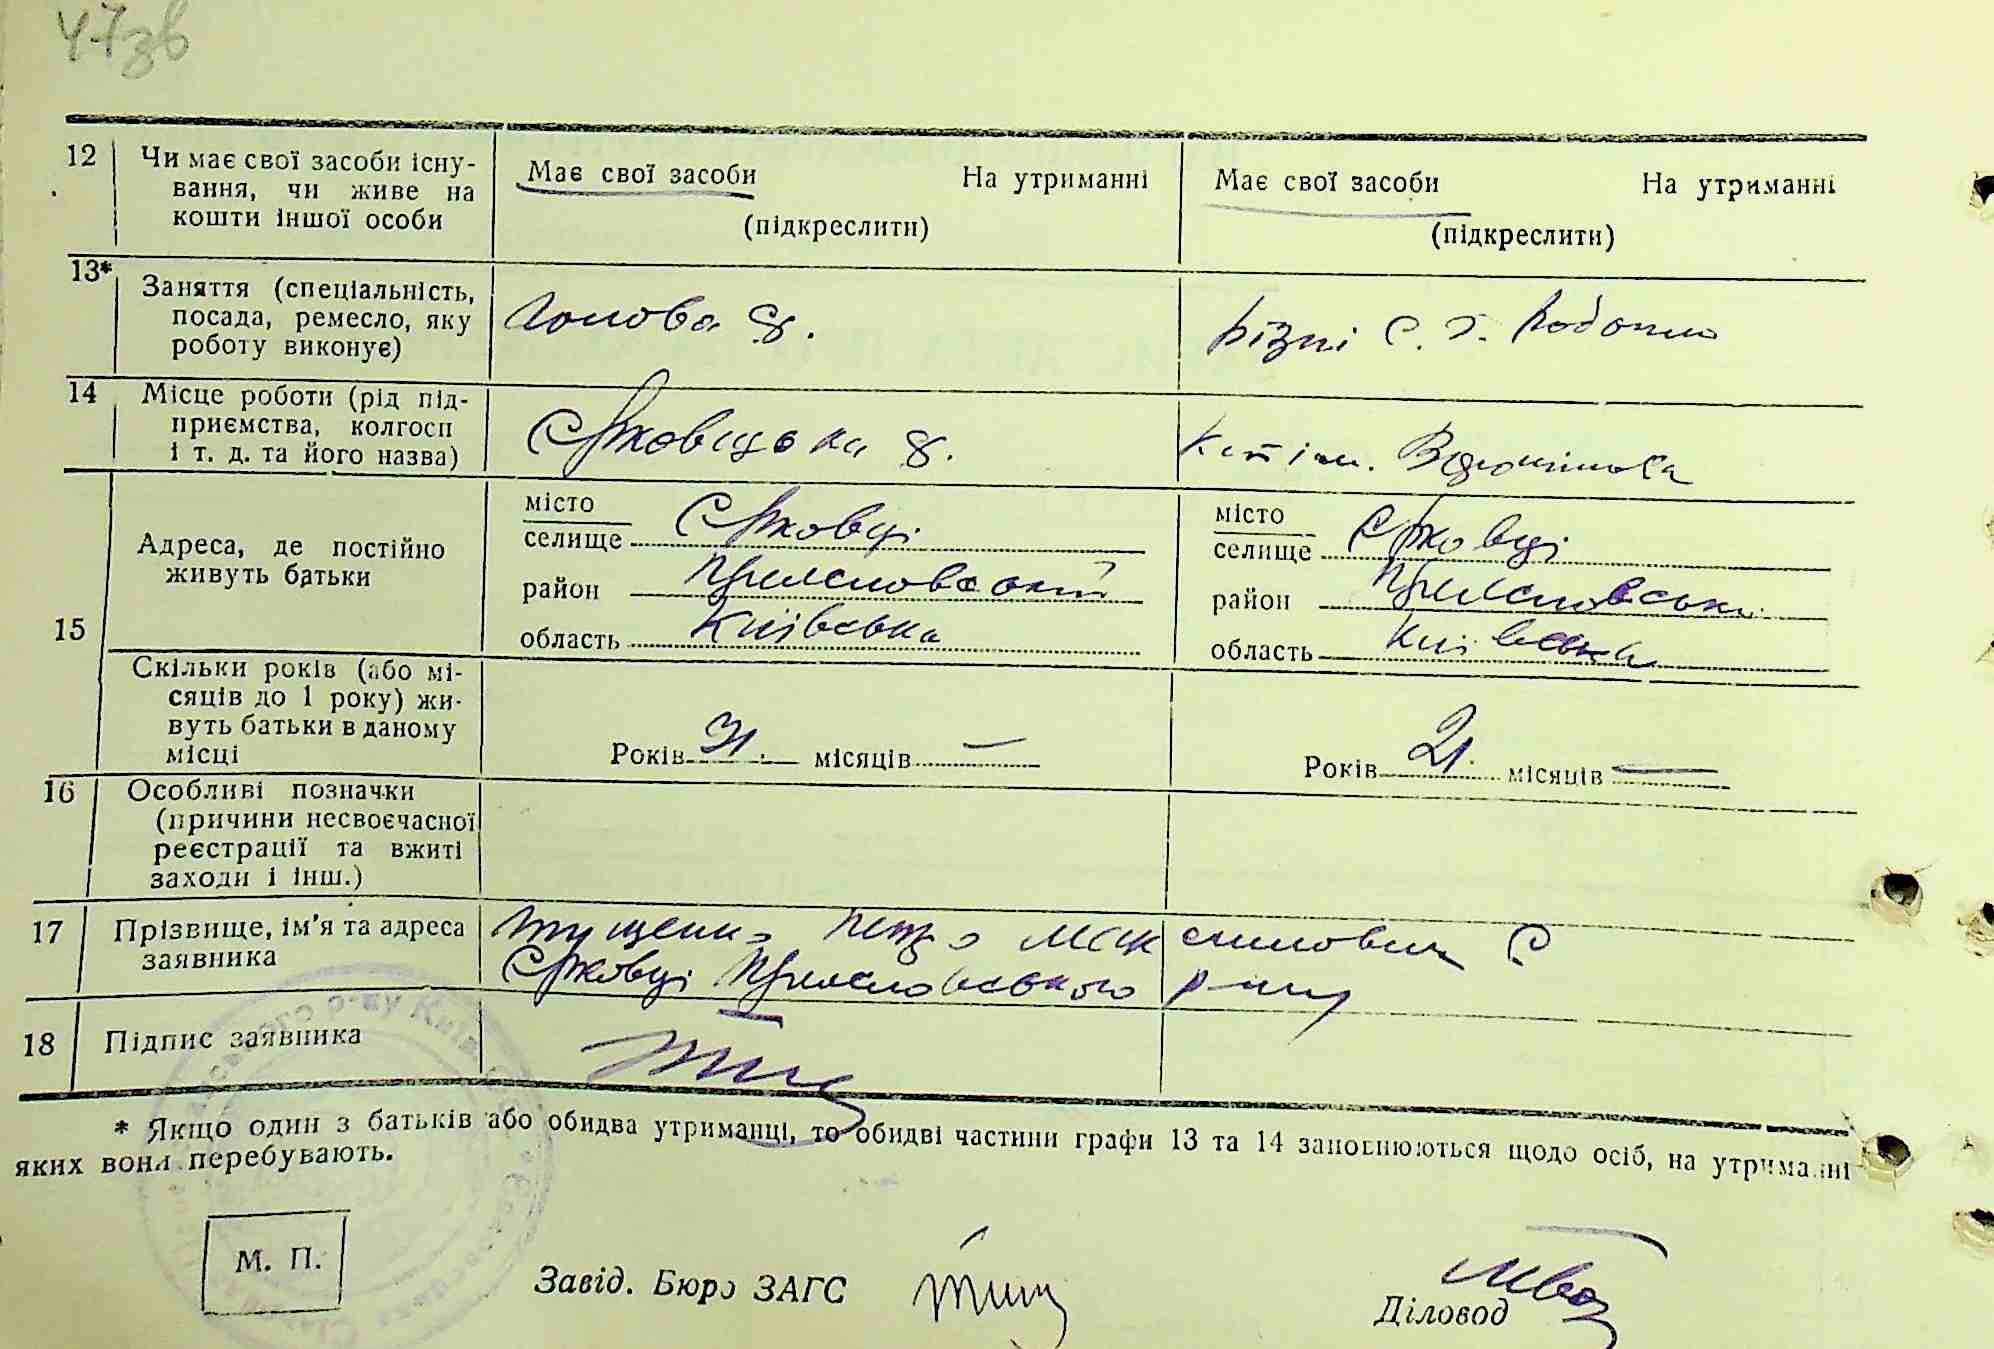 47зв
12 Чи має свої засоби існу-
вання, чи живе на
кошти іншої особи
Має свої засоби На утриманні
(підкреслити)
Має свої засоби На утриманні
(підкреслити)
13* Заняття (спеціальність,
посада, ремесло, яку
роботу виконує)
Голова
різні с. г. роботи
14 Місце роботи (рід під-
приємства, колгосп
і т. д. та його назва)
К-п ім. Ворошилова
15 Адреса, де постійно
живуть батьки
місто
селище Єрковці
район Переяславський
область Київська
місто
селище Єрковці
район Переяславський
область Київська
Скільки років (або мі-
сяців до 1 року) жи-
вуть батьки в даному
місці
Років 31. місяців —
Років 21. місяців —
16 Особливі позначки
(причини несвоєчасної
реєстрації та вжиті
заходи і інш.)
17 Прізвище, ім'я та адреса
заявника
Петро Максимович С
Єрковці р-ну
18 Підпис заявника
* Якщо один з батьків або обидва утриманці, то обидві частини графи 13 та 14 заповнюються щодо осіб, на утриманні
яких вони перебувають.
М. П.
Завід. Бюро ЗАГС
Діловод